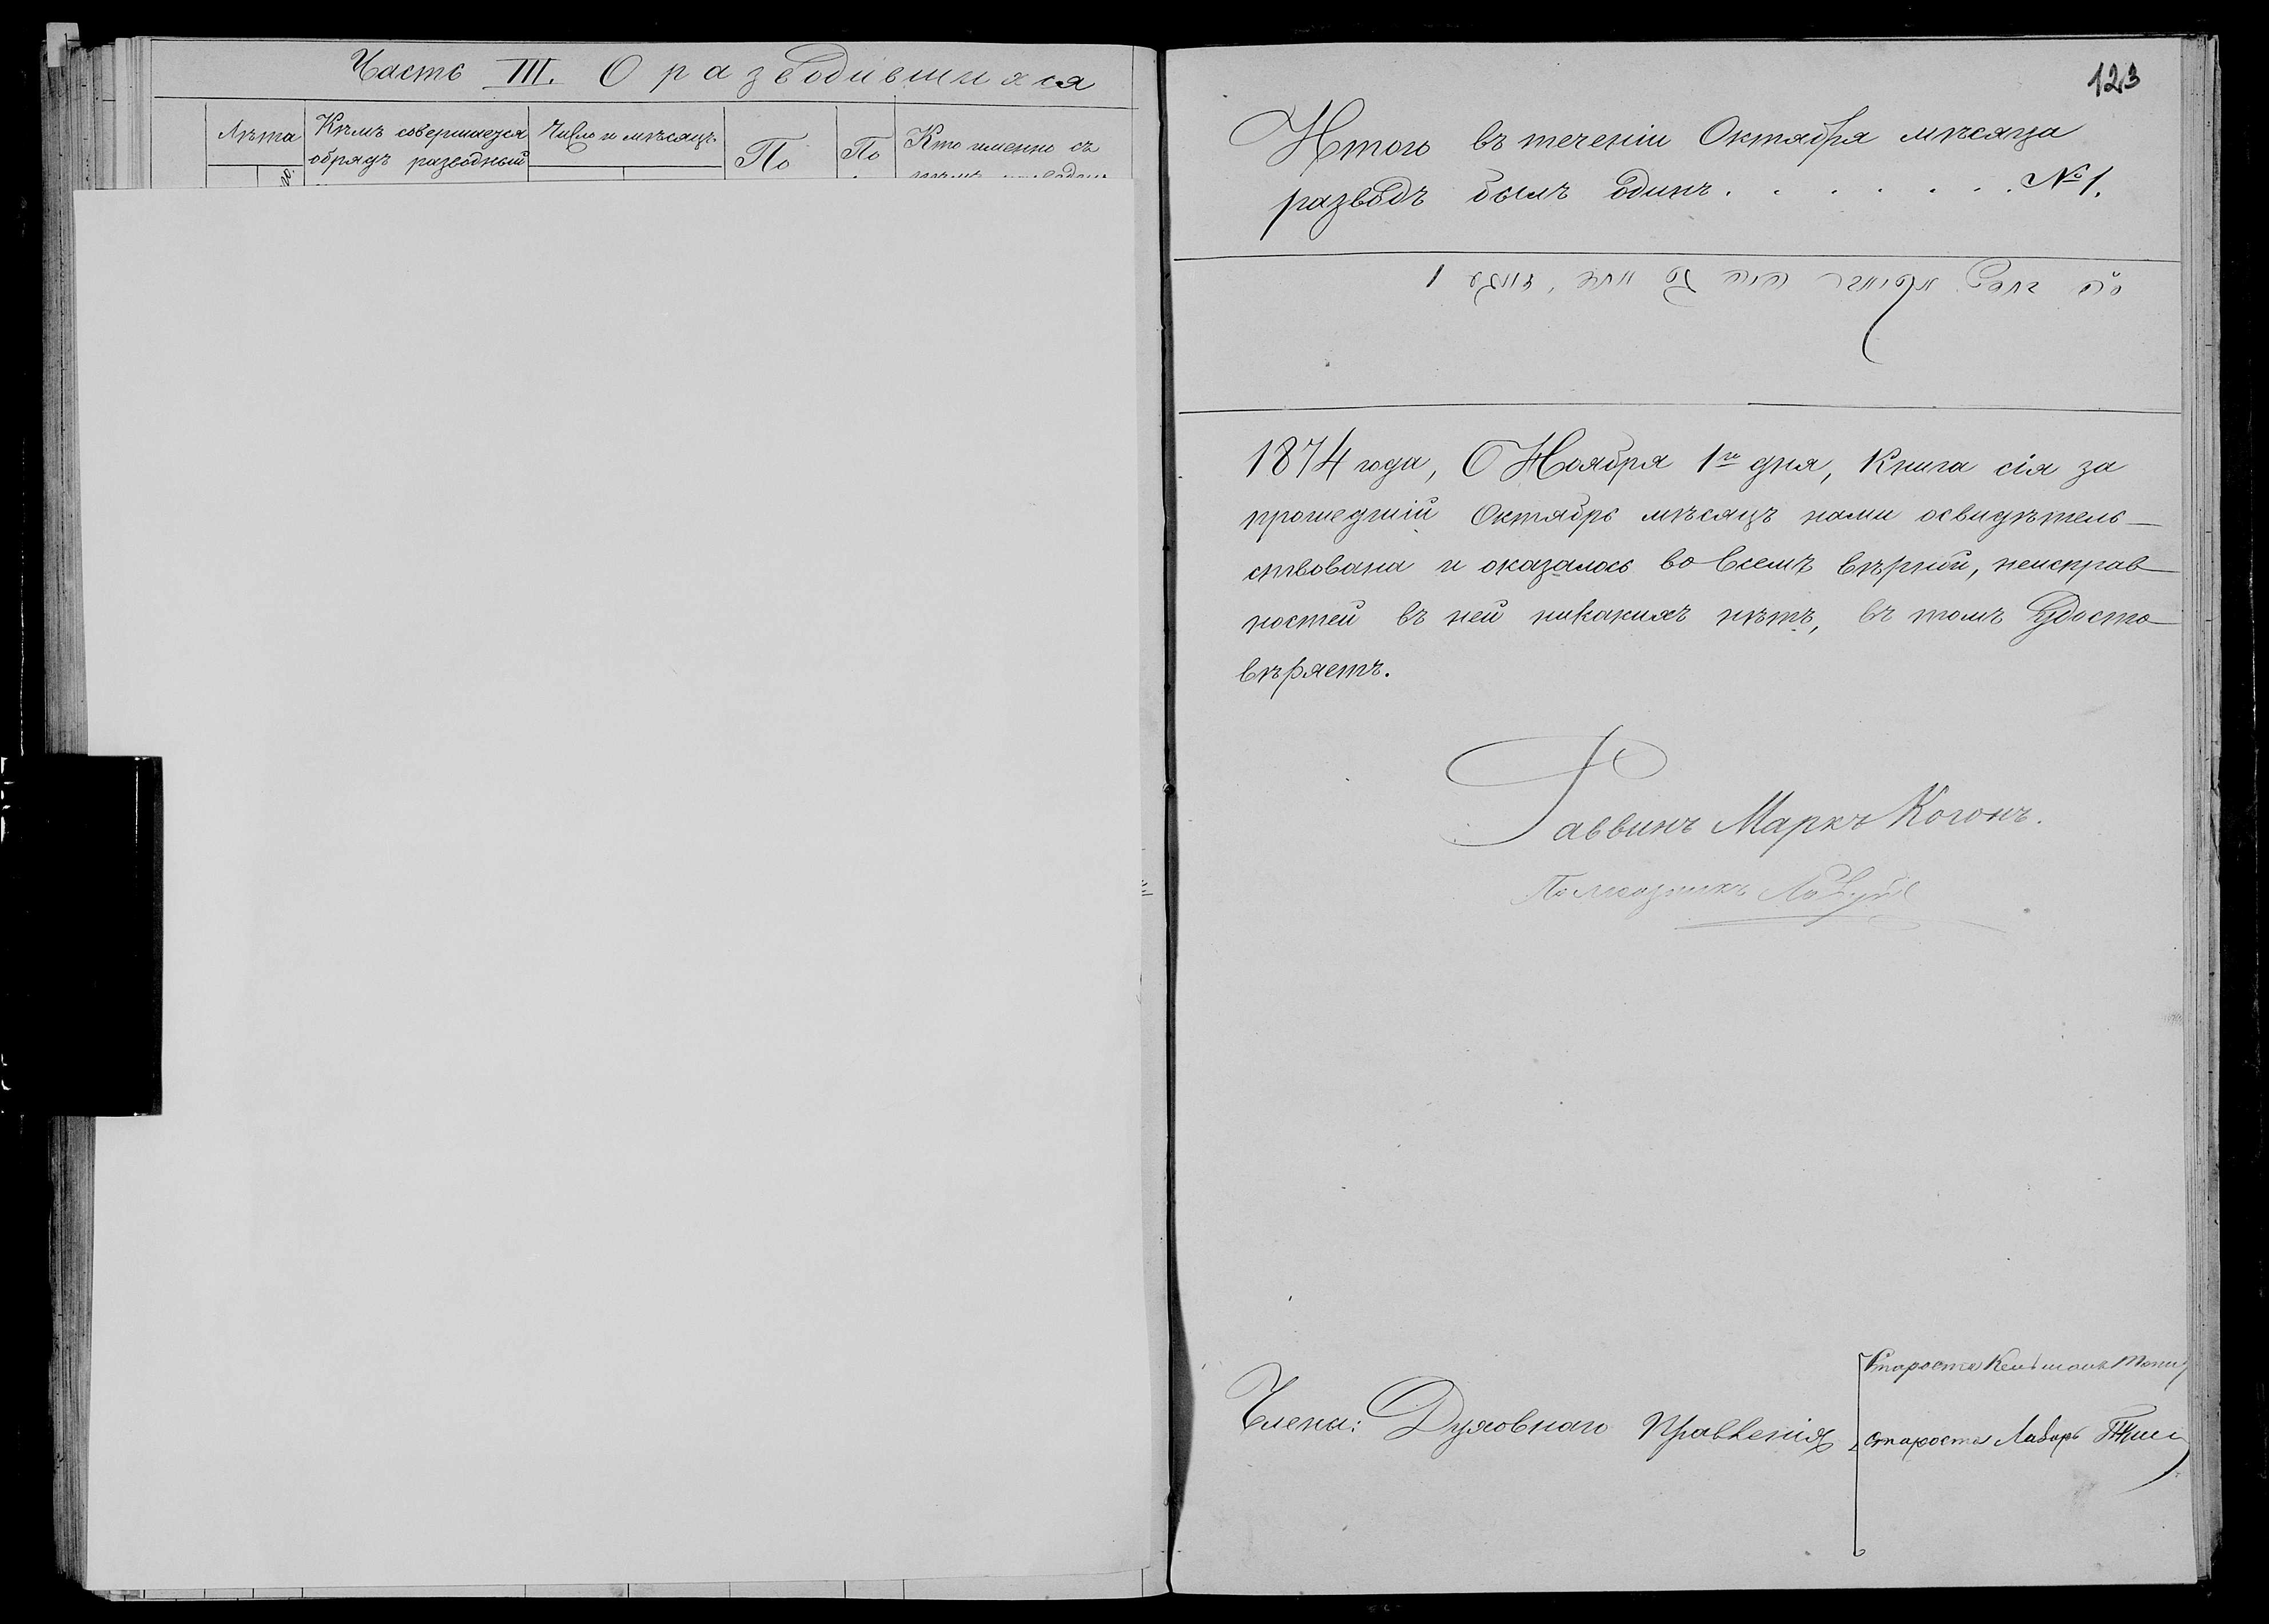 Часть III. О разводившихся
Лѣта
Кѣмъ совершается
обрядъ разводный
Число и мѣсяцъ
По
По
Кто именно съ
123
Итого въ теченіи Октября мѣсяца
разводъ былъ одинъ . . . . . . . №1.
1
1874 года, Ноября 1го дня, Книга сія за
прошедшій Октябрь мѣсяцъ нами освидѣтель-
ствована и оказалось во всемъ вѣрной, неисправ-
ностей въ ней никакихъ нѣтъ, въ томъ Удосто-
вѣряетъ.
Раввинъ Маркъ Когонъ.
Члены: Духовнаго Правленія
Староста Кельманъ
староста Лаборь